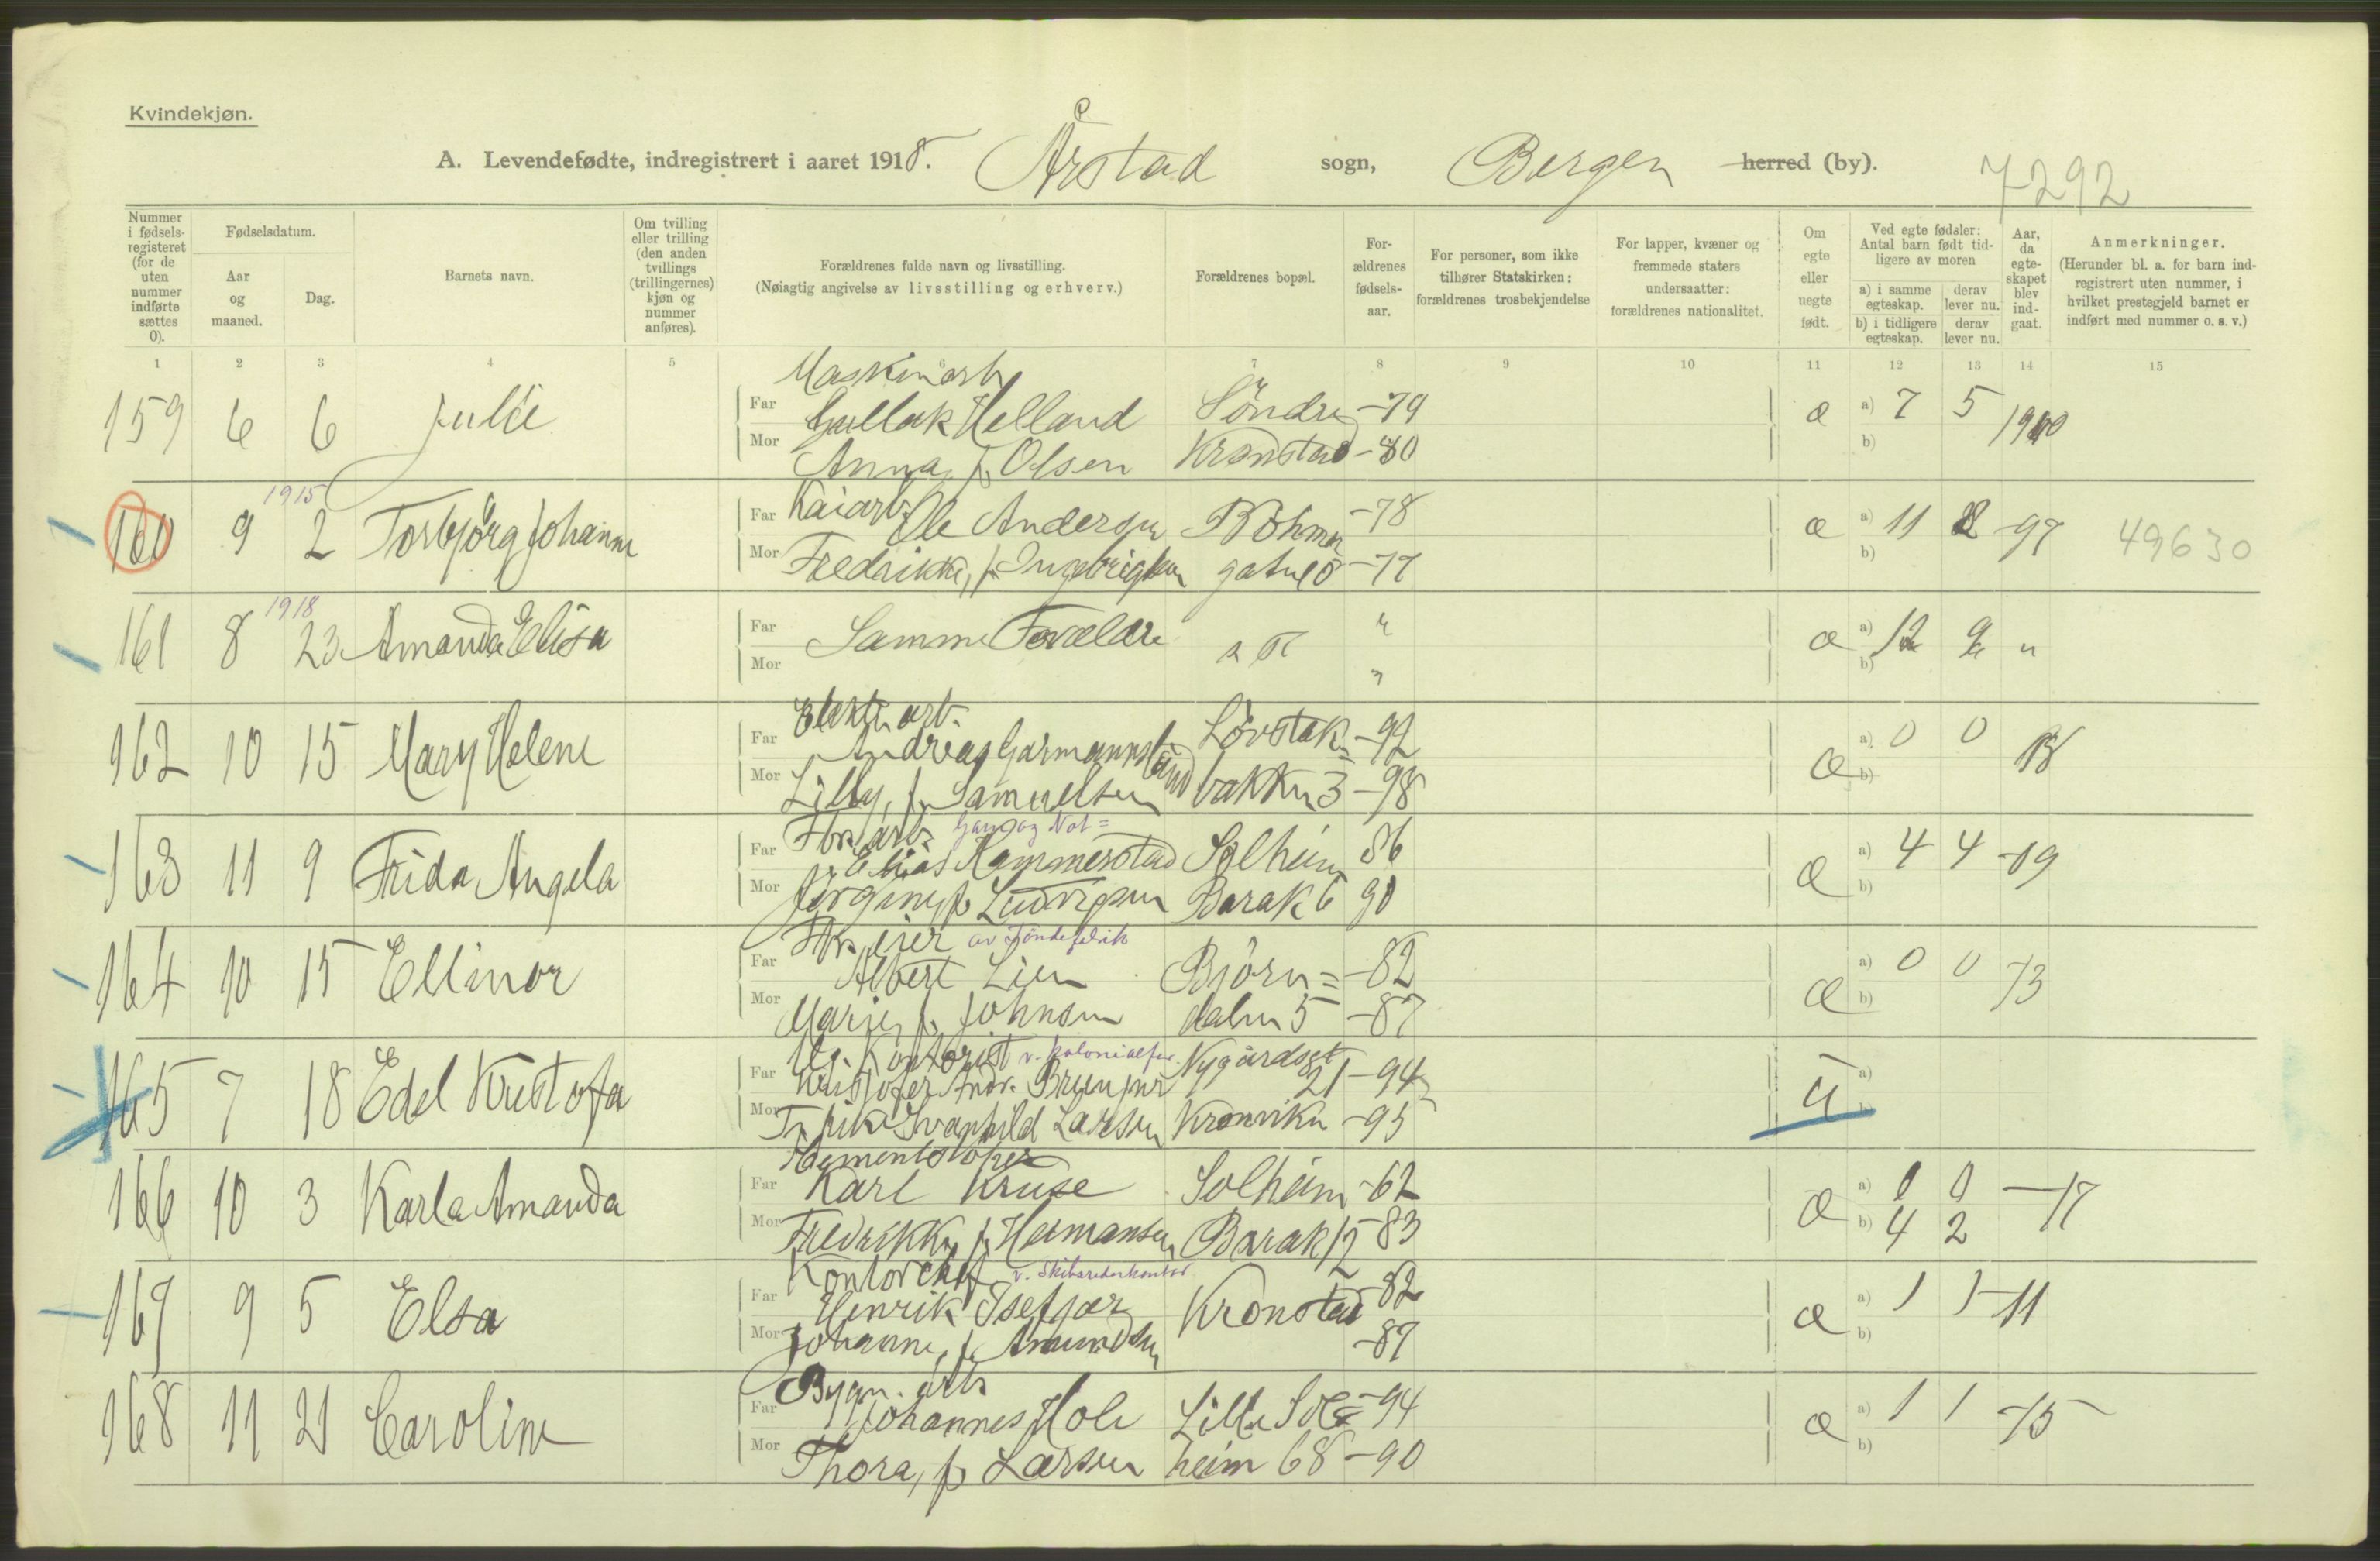 Kvindekjøn.
A. Levendefødte, indregistrert i aaret 1918. Årstad sogn, Bergen herred (by). 7292
Nummer i fødsels-registeret (for de uten nummer indførte sættes 0).
Fødselsdatum.
Aar og maaned.
Dag.
Barnets navn.
Om tvilling eller trilling (den anden tvillings (trillingernes) kjøn og nummer anføres).
Forældrenes fulde navn og livsstilling.
(Nøiagtig angivelse av livsstilling og erhverv.)
Forældrenes bopæl.
For-ældrenes fødsels-aar.
For personer, som ikke tilhører Statskirken: forældrenes trosbekjendelse
For lapper, kvæner og fremmede staters undersaatter: forældrenes nationalitet.
Om egte eller uegte født.
Ved egte fødsler: Antal barn født tid-ligere av moren
a) i samme egteskap. derav lever nu.
b) i tidligere egteskap. derav lever nu.
Aar, da egte-skapet blev ind-gaat.
Anmerkninger.
(Herunder bl. a. for barn ind-registrert uten nummer, i hvilket prestegjeld barnet er indført med nummer o. s. v.)
1 2 3 4 5 6 7 8 9 10 11 12 13 14 15
Maskinarb
159 6 6 Julie Far Gullak Helland Söndre -79 æ a) 7 5 1900
Mor Anna, f. Olsen Kronstad -80 b)
1915
160 9 2 Torbjörg Johanne Far Kaiarb. Ole Andersen Böhmer -78 æ a) 11 8 -97 49630
Mor Fredrikke, f. Ingebrigtsen gaten 8 -77 b)
1918
161 8 23 Amanda Elisa Far Samme Forældre æ a) 12 9 "
Mor " b)
Elektr. arb.
162 10 15 Mary Helene Far Andreas Garmannslund Lövstak= -92 æ a) 0 0 18
Mor Lilly, f. Samuelsen bakken 3 -98 b)
Fbr. arb. Garn og Not=
163 11 9 Frida Angela Far Elias Hammerstad Solheim 86 æ a) 4 4 -09
Mor Jörgine, f. Ludvigsen Barak 6 90 b)
Fbr. eier av Töndefabrik
164 10 15 Ellinor Far Albert Lien Björn= -82 æ a) 0 0 13
Mor Marie, f. Johnsen dalen 5 -87 b)
Ug. Kontorist v. kolonialfor. Nygårdsgt
165 7 18 Edel Kristofa Far Kristofer Andr. Bruun 21 -94 u a)
Mor Svanhild Larsen Kronviken -95 b)
Cementstöper
166 10 3 Karla Amanda Far Karl Kruse Solheim -62 æ a) 0 0 -17
Mor Fredrikke, f. Hermansen Barak 12 -83 b) 4 2
Kontorchef v. Skibsrederkontor
167 9 5 Elsa Far Henrik Isefjær Kronstad -82 æ a) 1 1 -11
Mor Johanne, f. Amundsen -87 b)
Bygn. arb.
168 11 21 Caroline Far Johannes Hole Lille Sol= -94 æ a) 1 1 -15
Mor Thora, f. Larsen heim 68 -90 b)